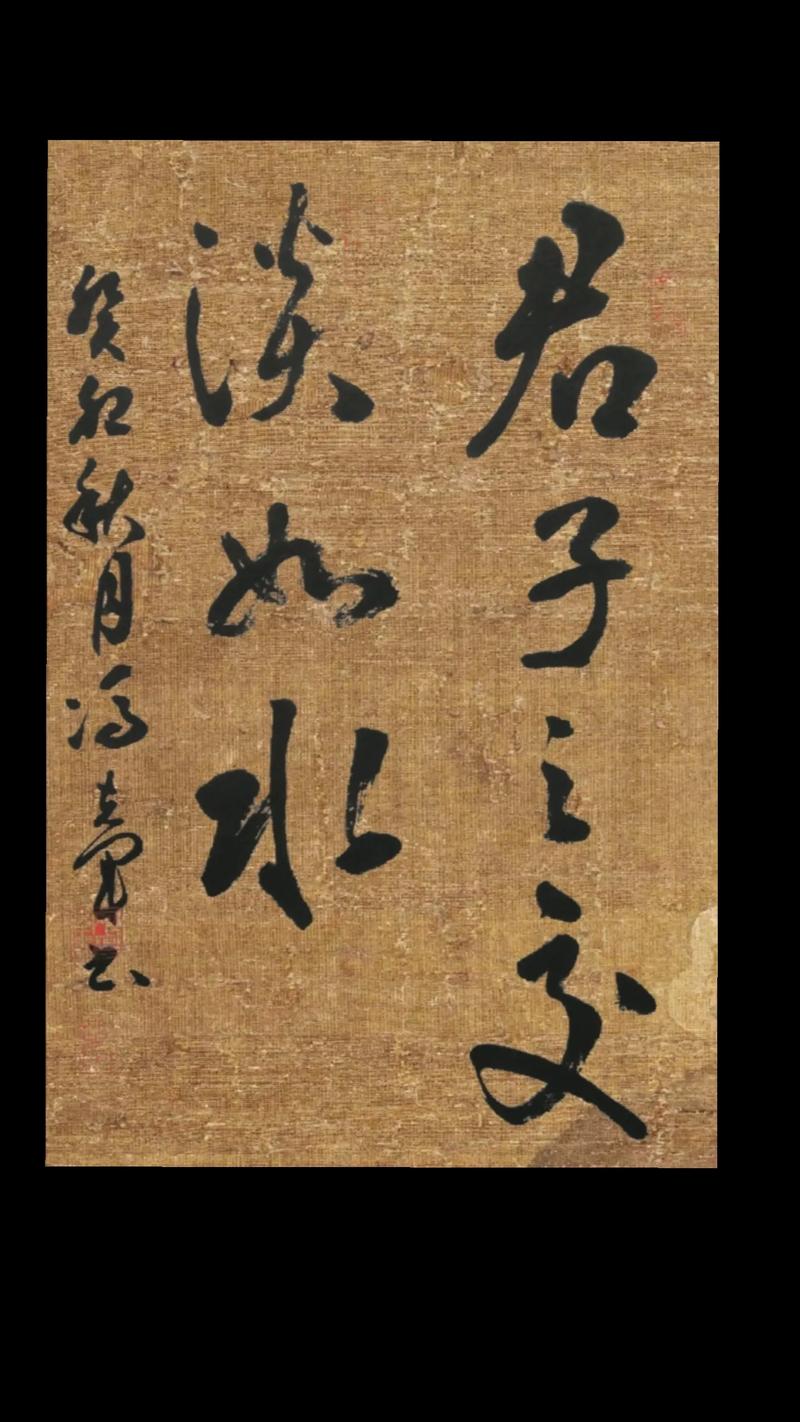 君子之交
淡如水
癸卯秋月冯